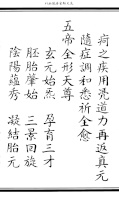 之疾用凭道力再返真元
隨症調和悉祈全愈
五帝全形天尊
玄元始炁　孕育三才
胚胎肇始　三景回旋
陰陽蘊秀　凝結胎元